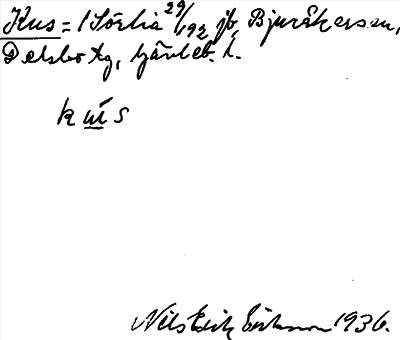 Kus = 1 Sörlia 29/192 jb, Bjuråkerssn,
Delsbo tg, Gävleb. l.
kus
Nils Erik Eriksson 1936.